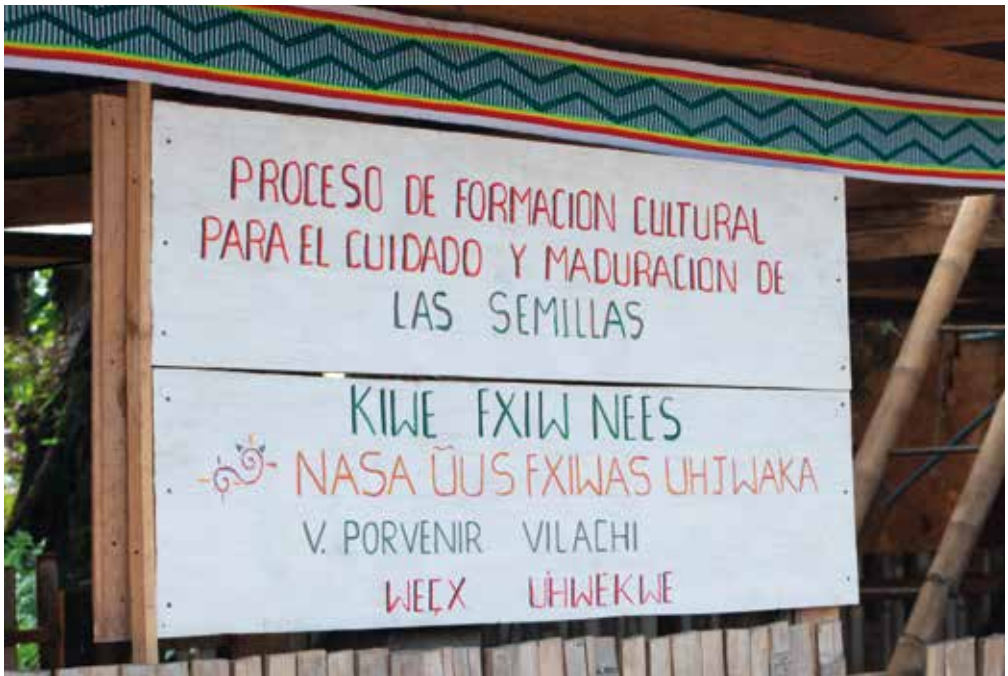 PROCESO DE FORMACION CULTURAL
PARA EL CUIDADO Y MADURACION DE
LAS SEMILLAS
KIWE FXIW NEES
NASA ŨUS FXIWAS UHJWAKA
V. PORVENIR VILACHI
WEÇX ÙHWEKWE